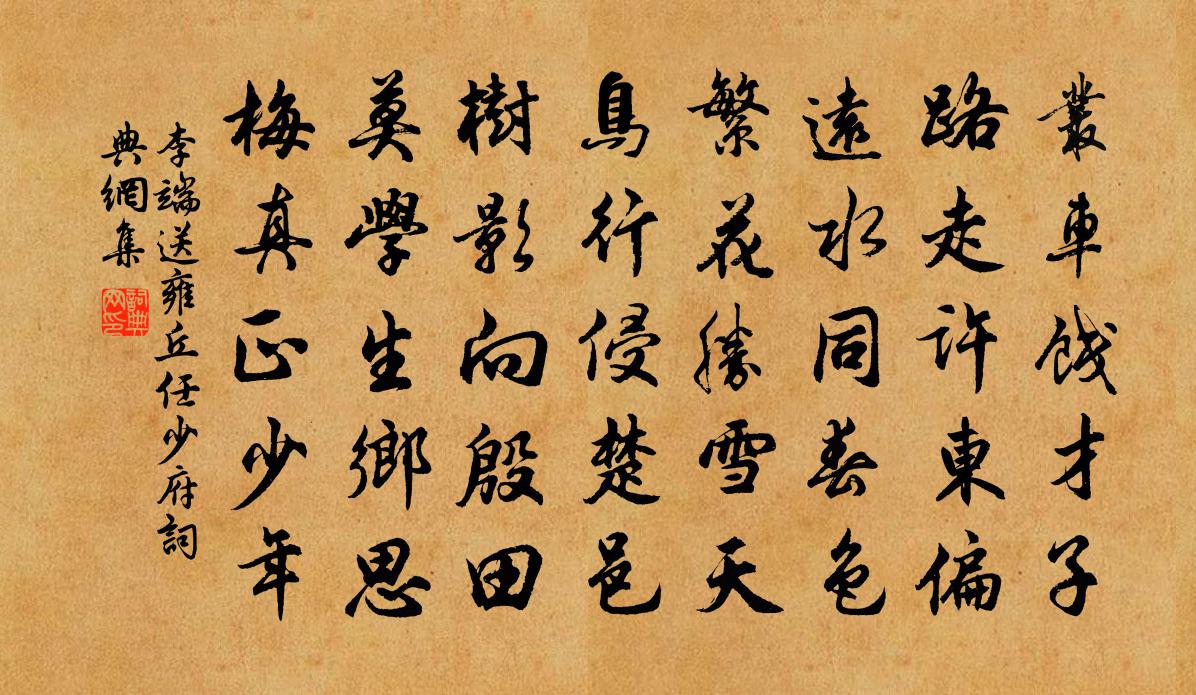 叢車餞才子
路走許東偏
遠水同春色
繁花勝雪天
鳥行侵楚邑
樹影向殷田
莫學生鄉思
梅真正少年
李端送雍丘任少府詞
典網集
詞典
网印